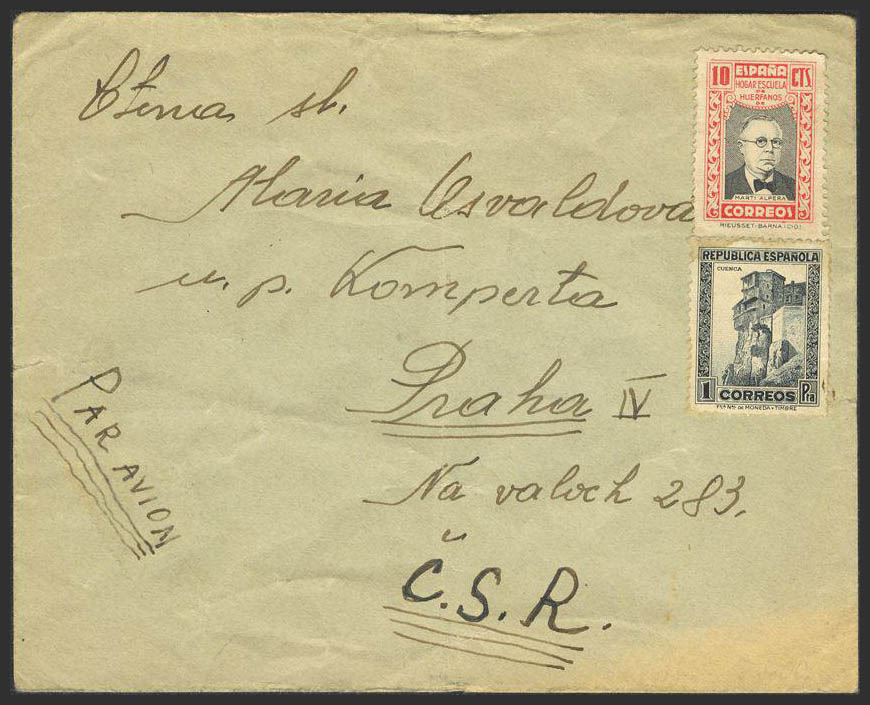 Ctěná sl.
Maria Osvaldova
u. p. Komperta
Praha IV
Na valech 283.
Č.S.R.
PAR AVION
10 ESPAÑA CTS
HOGAR ESCUELA
DE
HUERFANOS
DE
MARTI ALPERA
CORREOS
RIEUSSET-BARNA
REPUBLICA ESPAÑOLA
CUENCA
1 CORREOS Pta
FCA NAL DE MONEDA Y TIMBRE